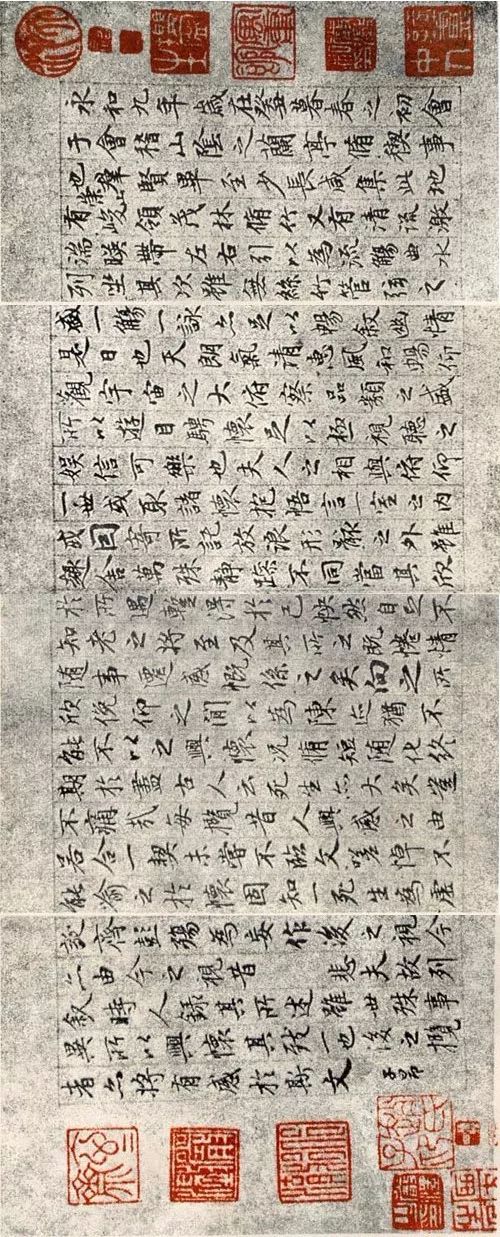 永和九年歲在癸丑暮春之初會
于會稽山陰之蘭亭脩稧事
也群賢畢至少長咸集此地
有崇山峻領茂林脩竹又有清流激
湍暎帶左右引以為流觴曲水
列坐其次雖無絲竹管弦之
盛一觴一詠亦足以暢敘幽情
是日也天朗氣清惠風和暢仰
觀宇宙之大俯察品類之盛
所以遊目騁懷足以極視聽之
娛信可樂也夫人之相與俯仰
一世或取諸懷抱悟言一室之內
或因寄所託放浪形骸之外雖
趣舍萬殊靜躁不同當其欣
於所遇暫得於己怏然自足不
知老之將至及其所之既惓情
隨事遷感慨係之矣向之所
欣俛仰之閒以為陳迹猶不
能不以之興懷況脩短隨化終
期於盡古人云死生亦大矣豈
不痛哉每攬昔人興感之由
若合一契未嘗不臨文嗟悼不
能喻之於懷固知一死生為虛
誕齊彭殤為妄作後之視今
亦由今之視昔悲夫故列
敘時人錄其所述雖世殊事
異所以興懷其致一也後之攬
者亦將有感於斯文
子昂